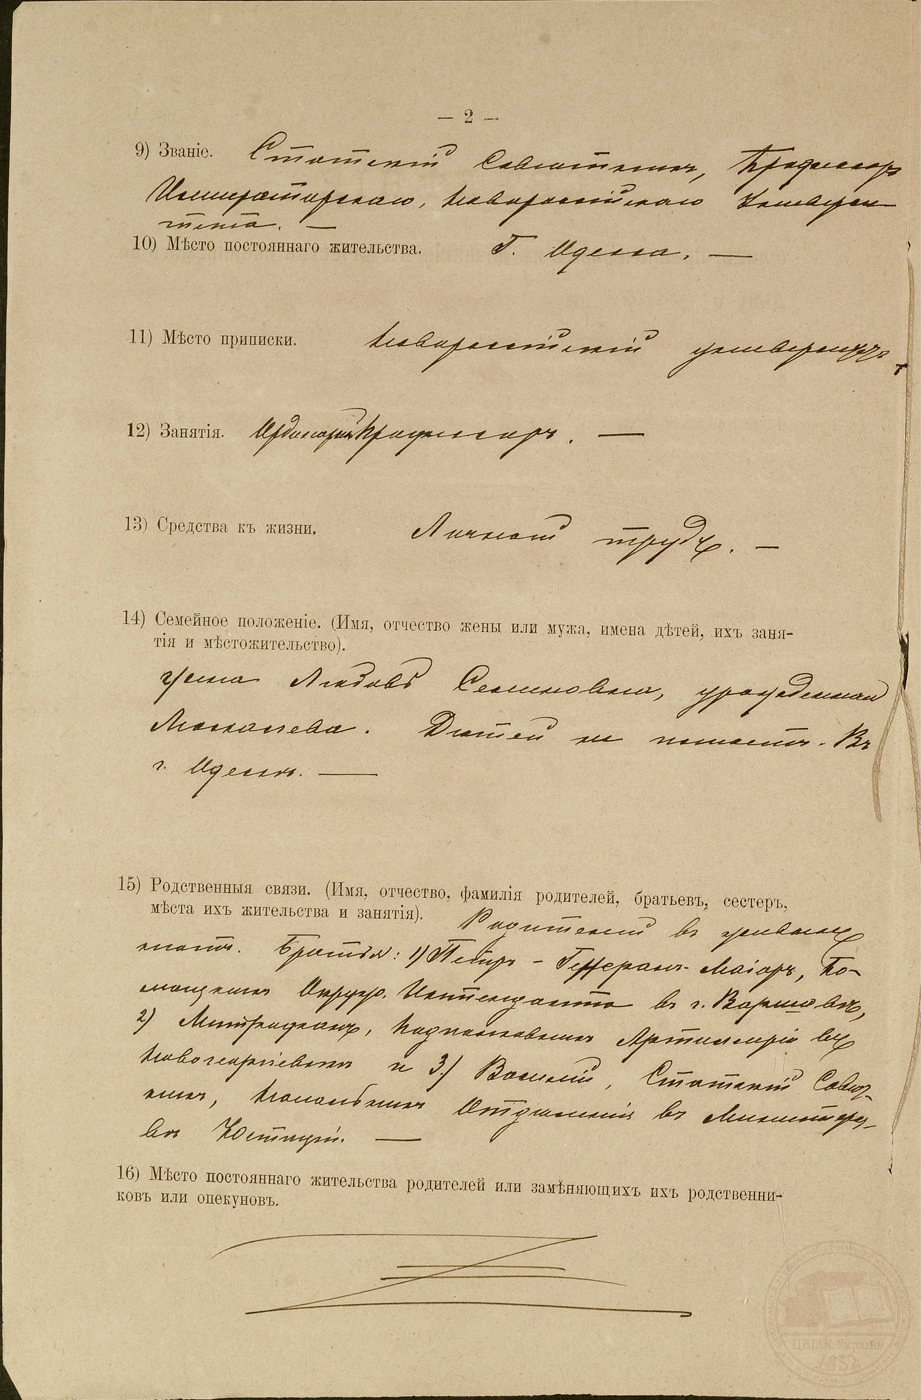 — 2 —
9) Званіе. Статскій Совѣтникъ, Профессоръ
Императорскаго, Новороссійскаго Универси-
тета. —
10) Мѣсто постояннаго жительства. Г. Одесса. —
11) Мѣсто приписки. Новороссійскій университетъ
12) Занятія. Ординарн. Профессоръ. —
13) Средства къ жизни. Личный трудъ. —
14) Семейное положеніе. (Имя, отчество жены или мужа, имена дѣтей, ихъ заня-
тія и мѣстожительство).
Жена Любовь Семеновна, урожденная
Дѣтей не имѣетъ. Въ
г. Одессѣ. —
15) Родственныя связи. (Имя, отчество, фамилія родителей, братьевъ, сестеръ,
мѣста ихъ жительства и занятія). Родителей въ живыхъ
нѣтъ. Братья: 1) Петръ – Генералъ-Маіоръ, По-
мощникъ Окруж. Интенданта въ г. Варшавѣ,
2) Митрофанъ, Подполковникъ Артиллеріи въ
Новогеоргіевскѣ и 3) Василій, Статскій Совѣт-
никъ, Начальникъ Отдѣленія въ Министерст-
вѣ Юстиціи. —
16) Мѣсто постояннаго жительства родителей или замѣняющихъ ихъ родственни-
ковъ или опекуновъ.